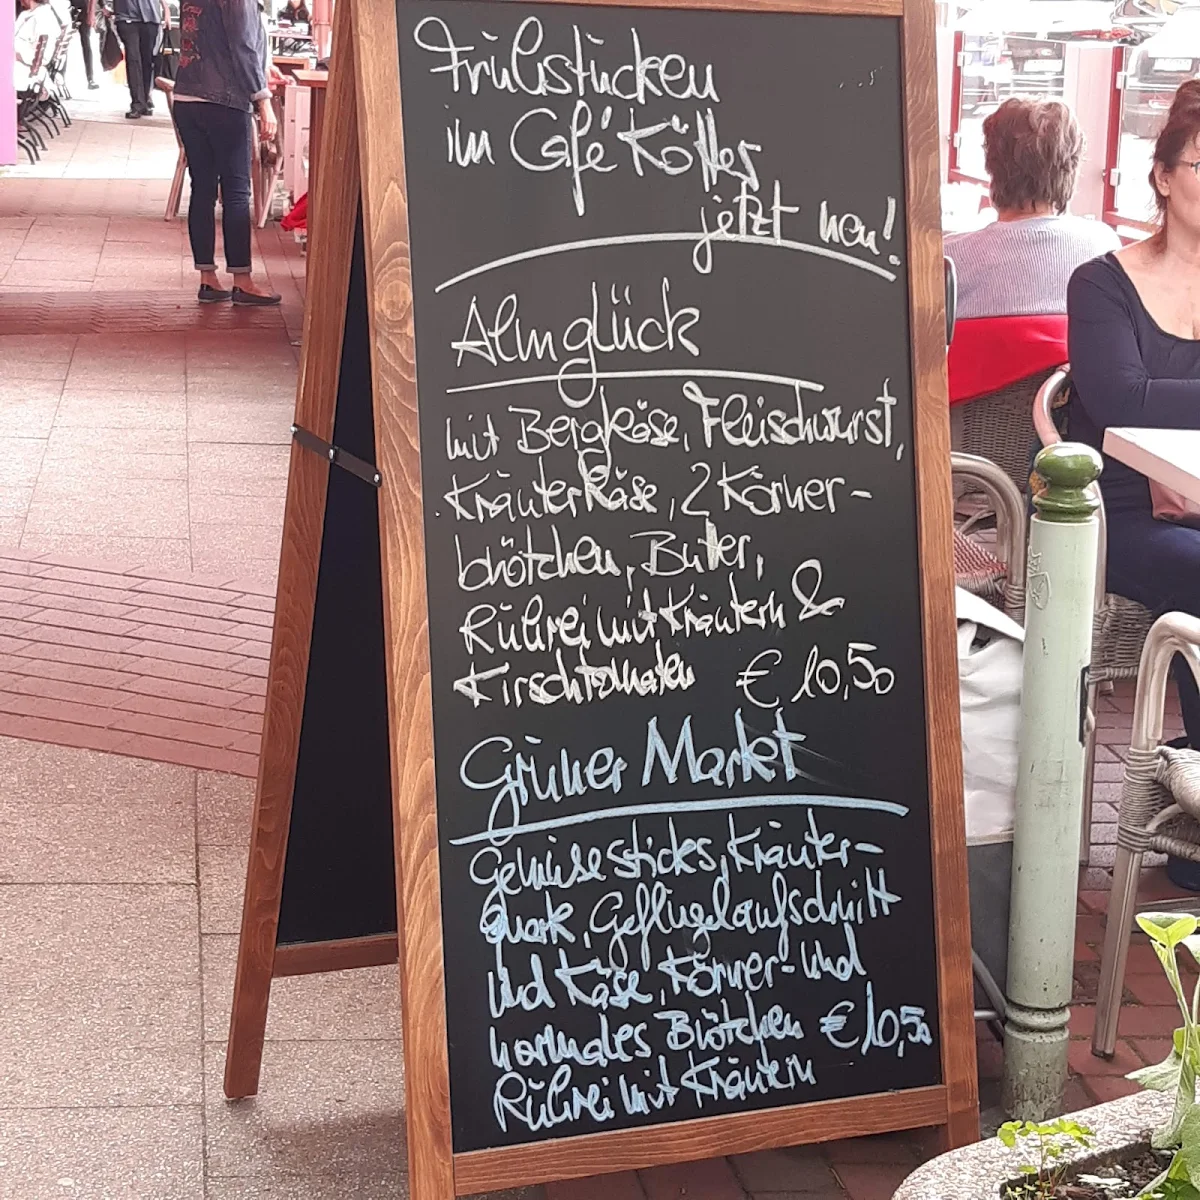 Frühstücken
im Café Kötter
jetzt neu!
Almglück
mit Bergkäse, Fleischwurst,
Kräuterkäse, 2 Körner-
brötchen, Butter,
Rührei mit Kräutern &
Kirschtomaten € 10,50
Grüner Markt
Gemüsesticks, Kräuter-
quark, Geflügelaufschnitt
und Käse, Körner- und
normales Brötchen € 10,50
Rührei mit Kräutern